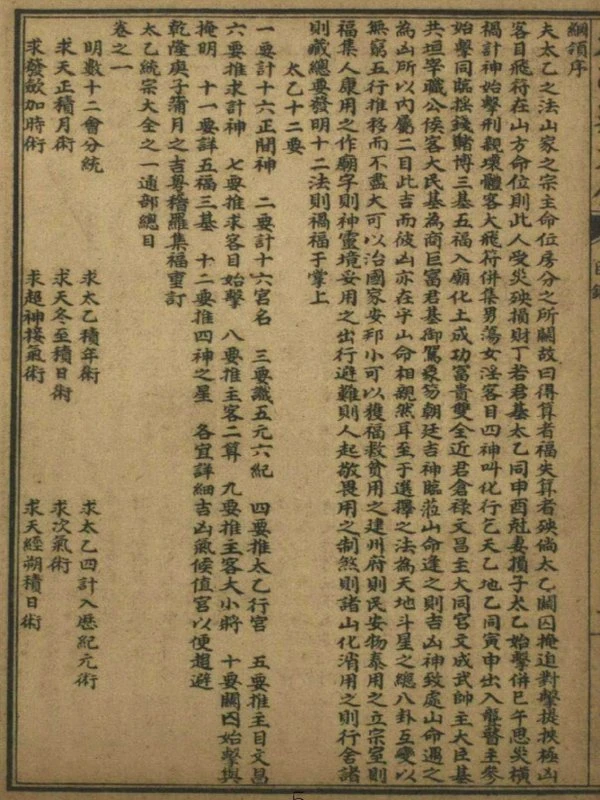 綱領序
夫太乙之法山家之宗主命位房分之所關故曰得算者福失算者殃倘太乙關囚掩迫對擊提挾極凶
客目飛符在山方命位則此人受災殃損財丁若君基太乙同申酉尅妻損子太乙始擊併巳午思災橫
禍計神始擊刑親壞體客大飛符併集男蕩女淫客目四神叫化行乞天乙地乙同寅申出入聾瞽主參
始擊同臨搖錢賭博三基五福入廟化土成功富貴雙全近君倉祿文昌主大同宮文成武帥主大臣基
共垣宰職公侯客大民基為商巨富君基御駕象笏朝廷吉神臨蒞山命逢之則吉凶神致處山命遇之
為凶所以內屬二目此吉而彼凶亦在乎山命相親然耳至于選擇之法為天地斗星之總八卦互變以
無窮五行推移而不盡大可以治國家安邦小可以獲福救貧用之建州府則民安物泰用之立宗室則
福集人康用之作廟宇則神靈境妥用之出行避難則人起敬畏用之制煞則諸山化消用之則行舍諸
則藏總要發明十二法則禍福于掌上
太乙十二要
一要計十六正間神 二要計十六宮名 三要識五元六紀 四要推太乙行宮 五要推主目文昌
六要推求計神 七要推求客目始擊 八要推主客二算 九要推主客大小將 十要關囚始擊與
掩明 十一要詳五福三基 十二要推四神之星 各宜詳細吉凶氣候值宮以便趨避
乾隆庚子蒲月之吉粵稽羅集福重訂
太乙統宗大全之一通部總目
卷之一
明數十二會分統 求太乙積年術 求太乙四計入歷紀元術
求天正積月術 求天冬至積日術 求次氣術
求發斂加時術 求超神接氣術 求天經朔積日術
5